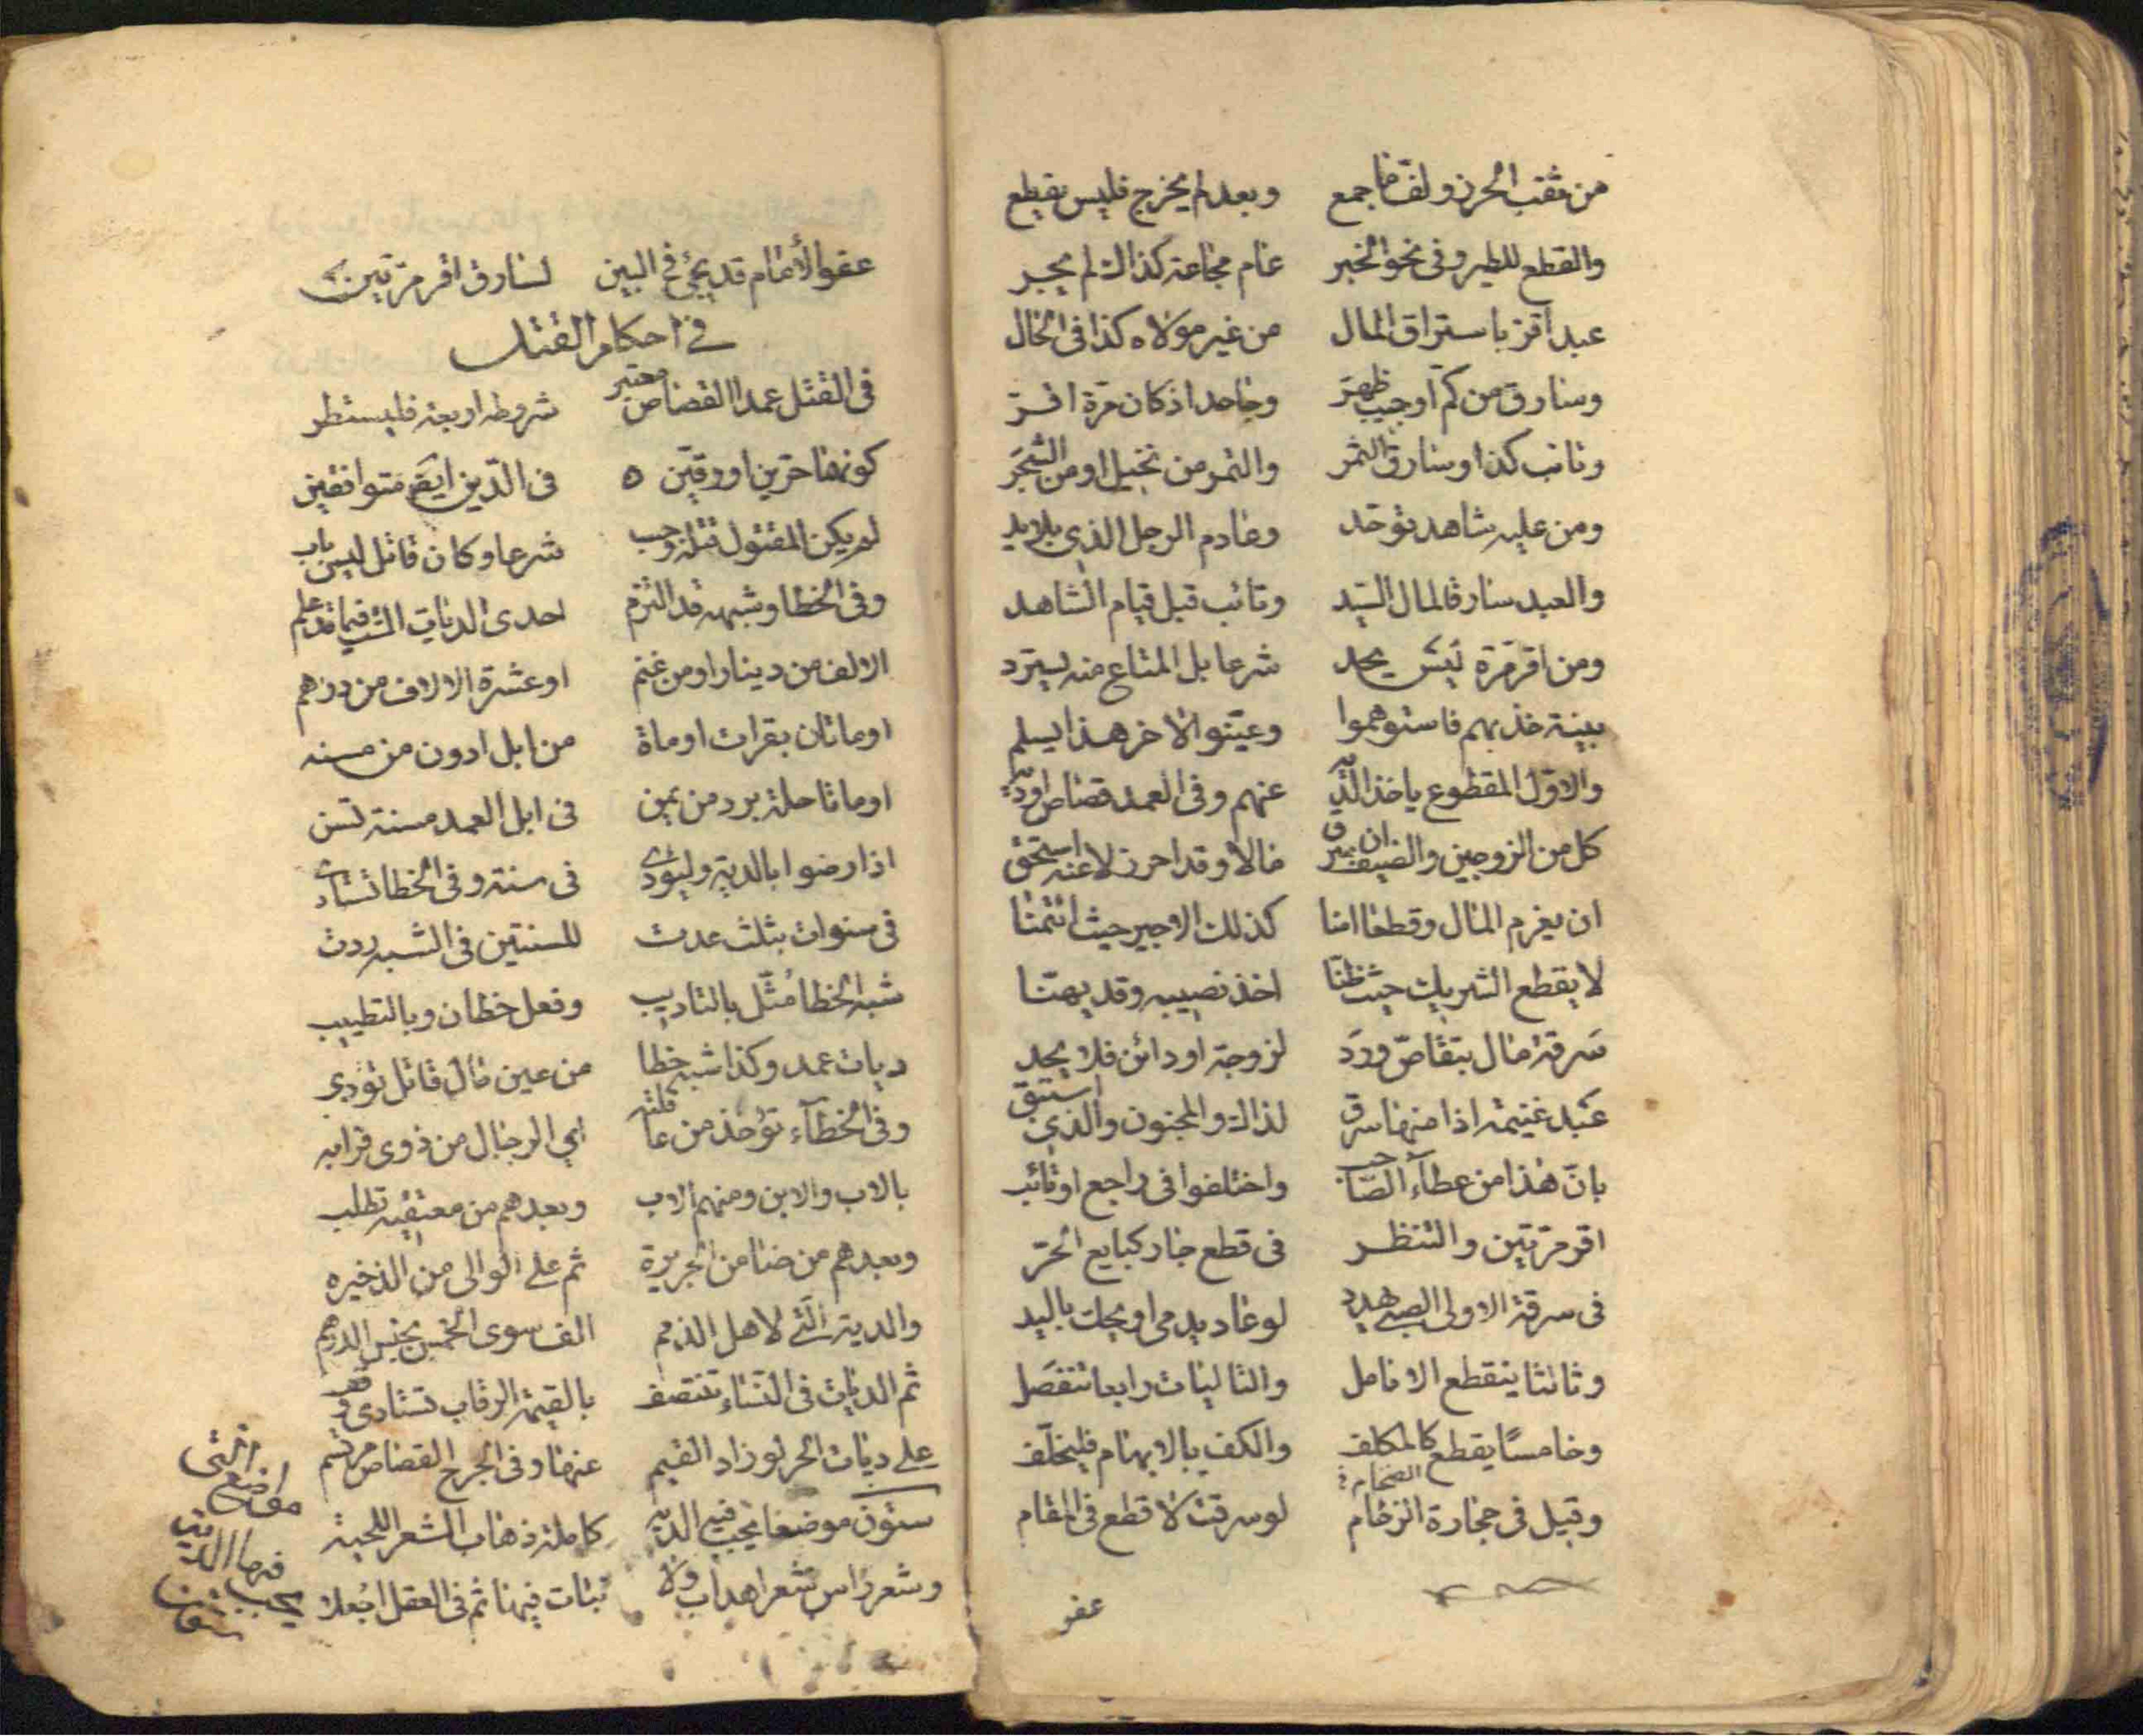 من ثقب الحرز ولف ما جمع وبعد لم يخرج فليس يقطع
والقطع للطير وفى نحو الخبز عام مجاعة كذاك لم يجز
عبد اقر باستراق المال من غير مولاه كذا فى الحال
وسارق من كم او جيب ظهر وجاحد اذ كان مرة اقر
وتائب كذا وسارق الثمر والتمر من نخيل او من الشجر
ومن عليه شاهد توحد وخادم الرجل الذى بلا يد
والعبد سارقا لمال السيد وتائب قبل قيام الشاهد
ومن اقر مرة ليس يحد شرعا بل المتاع منه يسترد
بينة خذ بهم فاستوهموا وعينوا الاخر هذا يسلم
والاول المقطوع ياخذ الديه عنهم وفى العمد قصاص او ديه
كل من الزوجين والضيف ان سرق مالا وقد احرز لا عنه استحق
ان يغرم المال وقطعا امنا كذلك الاجير حيث ائتمنا
لا يقطع الشريك حيث ظنا اخذ نصيبه وقد يهنا
سرقة مال بتقاص ورد لزوجة او دائن فلا يحد
عبد غنيمة اذا منها سرق لذاك والمجنون والذى استبق
بان هذا من عطاء الصاحب واختلفوا فى راجع او تائب
اقر مرتين والتنظر فى قطع جار كبايع الحر
فى سرقة الاولى الصبى هدد لو عاد يدمى او يحك باليد
وثالثا ينقطع الانامل والتاليات رابعا تنفصل
وخامسا يقطع كالمكلف والكف بالابهام فليخلف
وقيل فى حجارة الرخام لو سرقت لا قطع فى المقام
عفو
عفو الأمام قد يجئ فى البين لسارق اقر مرتين
فى احكام القتل
فى القتل عمدا القصاص معتبر شروطه اربعة فليستطر
كونهما حرين او رقين فى الدين ايضا متوافقين
لم يكن المقتول قتله وجب شرعا وكان قاتل ليس باب
وفى الخطا وشبهه قد التزم احدى الديات الست فيما قد علم
الالف من دينار او من غنم او عشرة الالاف من درهم
او ماتان بقرات او ماة من ابل ادون من مسنه
او ماتا حلة برد من يمن فى ابل العمد مسنة تسن
اذا رضوا بالدية وليودى فى سنة وفى الخطا تستادى
فى سنوات بثلث عدت للسنتين فى الشبه ردت
شبه الخطا مثل بالتاديب وفعل خطان وبالتطبيب
ديات عمد وكذا شبه خطا من عين مال قاتل تؤدى
وفى الخطآء تؤخذ من عاقله اى الرجال من ذوى قرابه
بالاب والابن ومنهم الاب وبعدهم من معتقيه تطلب
وبعدهم من ضامن الجريرة ثم على الوالى من الذخيره
والدية التى لاهل الذمم الف سوى الخمس بخمس الدرهم
ثم الديات فى النساء تنتصف بالقيمة الرقاب تستادى وقف
على ديات الحر لو زاد القيم عنها وفى الجرح القصاص مرتسم
ستون موضعا يجب فيه الديه كاملة ذهاب الشعر اللحية
وشعر راس شعر اهداب ولا نبات فيها ثم فى العقل اجعلا
مواضع التى
يجب فيها الدية